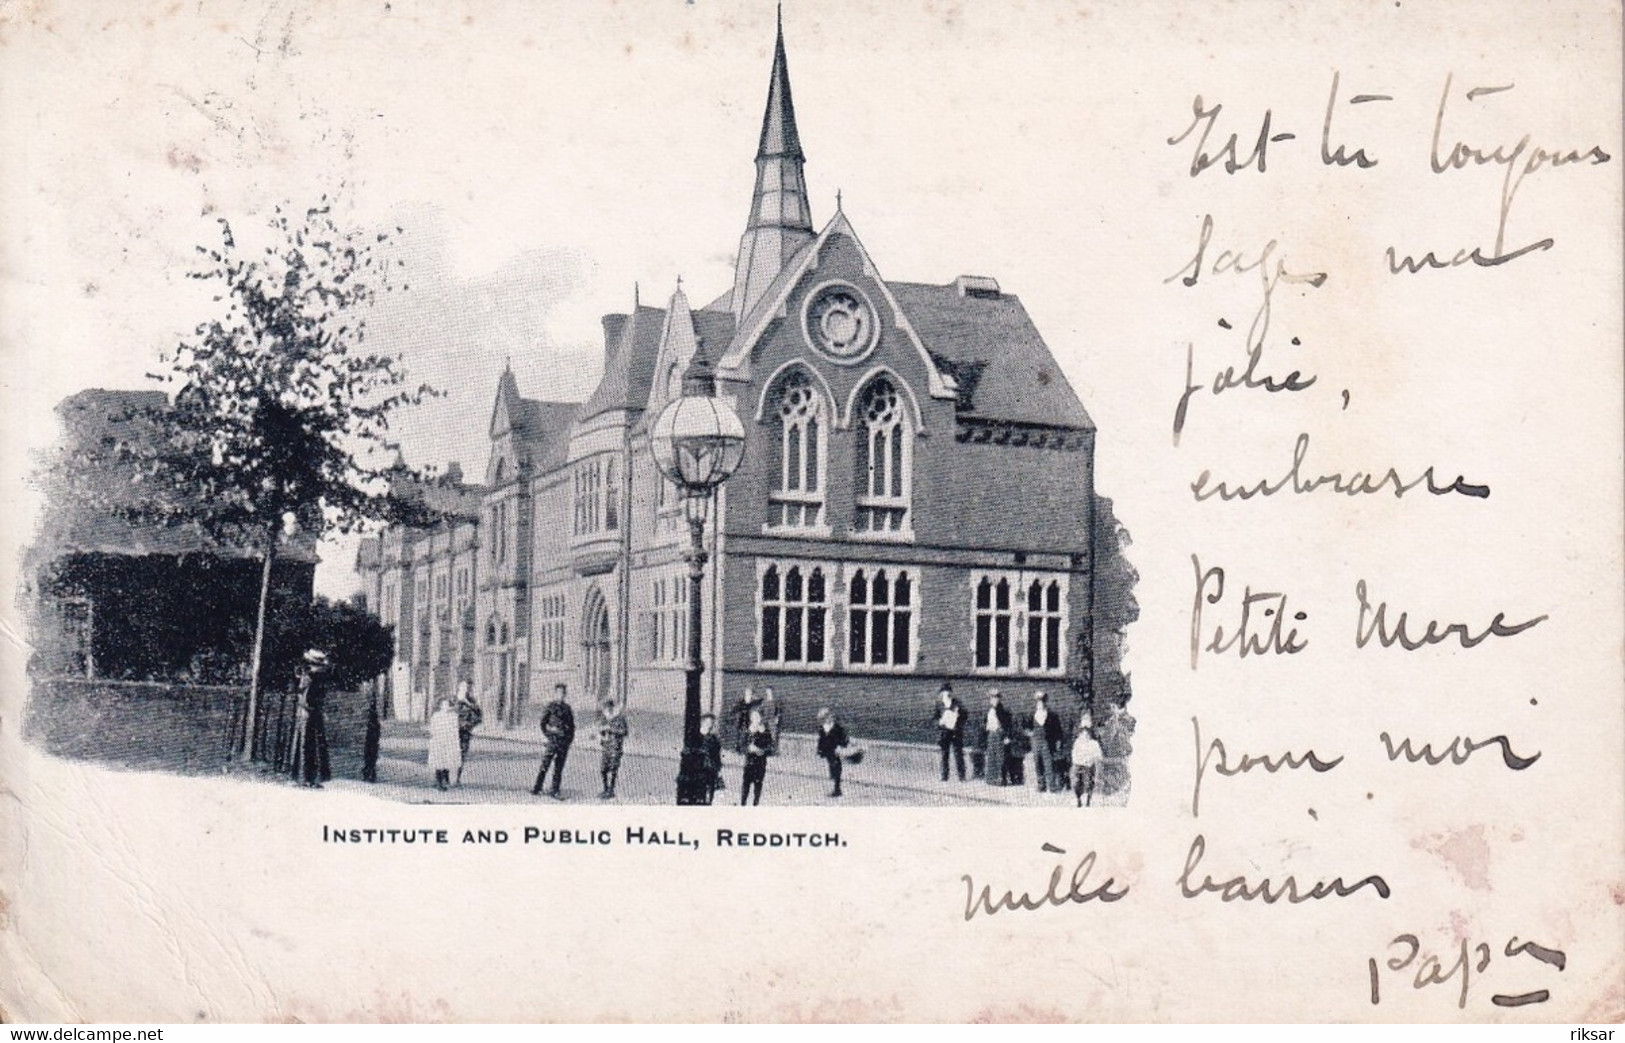 Est tu toujours
sage ma
jolie,
embrasse
Petite Mere
pour moi
mille baisers
Papa
INSTITUTE AND PUBLIC HALL, REDDITCH.
delcampe.net
riksar